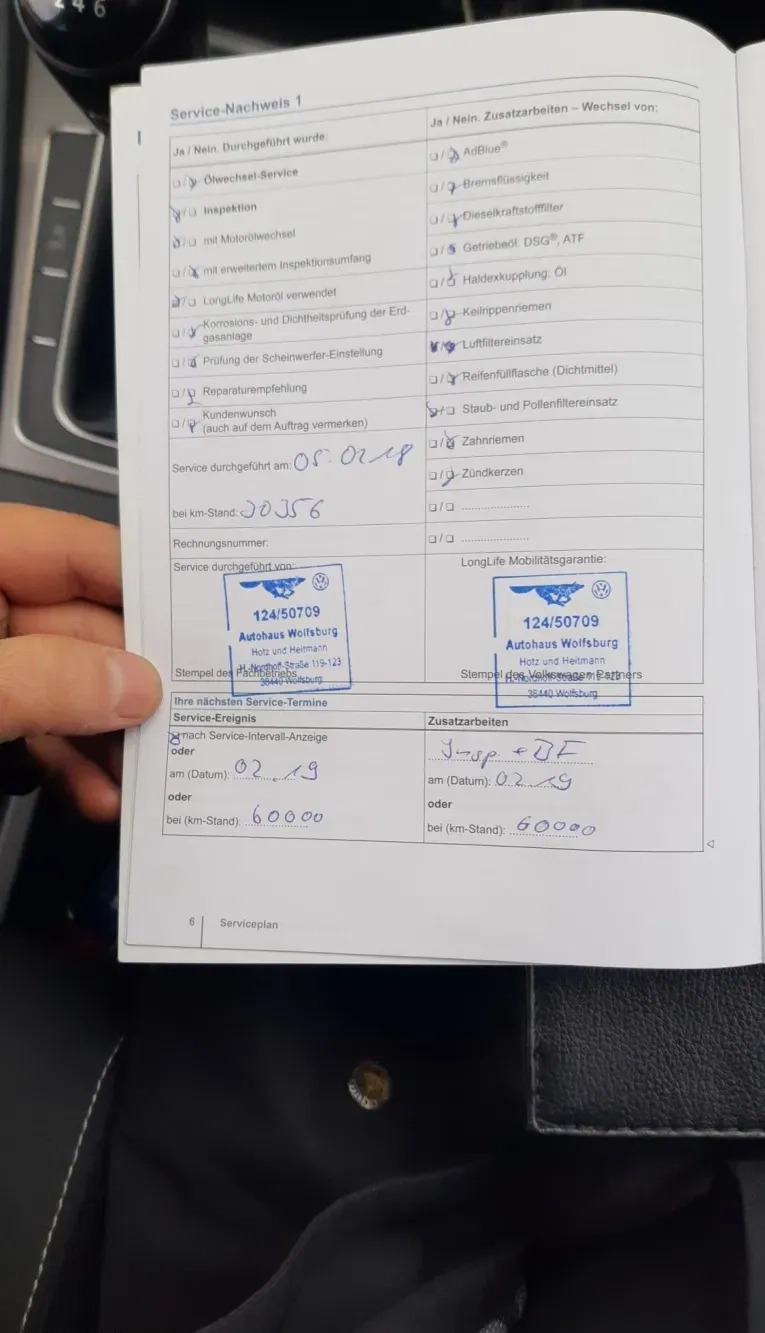 2 4 6
Service-Nachweis 1
Ja / Nein. Durchgeführt wurde:
Ölwechsel-Service
Inspektion
mit Motorölwechsel
mit erweitertem Inspektionsumfang
LongLife Motoröl verwendet
Korrosions- und Dichtheitsprüfung der Erd-
gasanlage
Prüfung der Scheinwerfer-Einstellung
Reparaturempfehlung
Kundenwunsch
(auch auf dem Auftrag vermerken)
Service durchgeführt am: 05.02.18
bei km-Stand: 30356
Rechnungsnummer:
Service durchgeführt von:
124/50709
Autohaus Wolfsburg
Hotz und Heitmann
H.-Nordhoff-Straße 119-123
38440 Wolfsburg
Stempel des Fachbetriebs
Ja / Nein. Zusatzarbeiten – Wechsel von:
AdBlue®
Bremsflüssigkeit
Dieselkraftstofffilter
Getriebeöl: DSG®, ATF
Haldexkupplung: Öl
Keilrippenriemen
Luftfiltereinsatz
Reifenfüllflasche (Dichtmittel)
Staub- und Pollenfiltereinsatz
Zahnriemen
Zündkerzen
LongLife Mobilitätsgarantie:
124/50709
Autohaus Wolfsburg
Hotz und Heitmann
H.-Nordhoff-Straße 119-123
38440 Wolfsburg
Stempel des Volkswagen Partners
Ihre nächsten Service-Termine
Service-Ereignis
nach Service-Intervall-Anzeige
oder
am (Datum): 02.19
oder
bei (km-Stand): 60000
Zusatzarbeiten
Insp. + BF
am (Datum): 02.19
oder
bei (km-Stand): 60000
6
Serviceplan